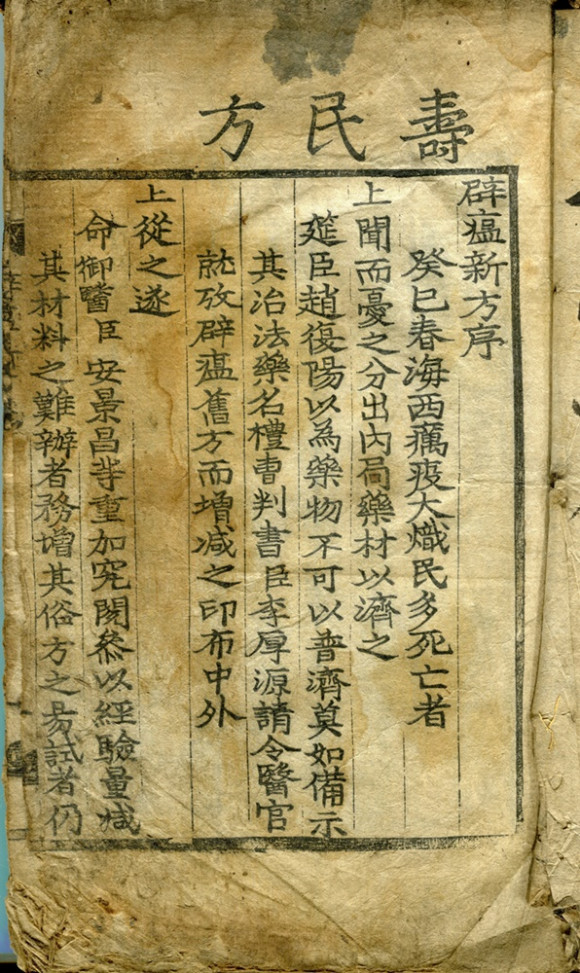 壽民方
辟瘟新方序
癸巳春海西癘疫大熾民多死亡者
上聞而憂之分出內局藥材以濟之
筵臣趙復陽以為藥物不可以普濟莫如備示
其治法藥名禮曹判書臣李厚源請令醫官
就攷辟瘟舊方而增减之印布中外
上從之遂
命御醫臣安景昌等重加究閱叅以經驗量减
其材料之難辦者務增其俗方之易試者仍